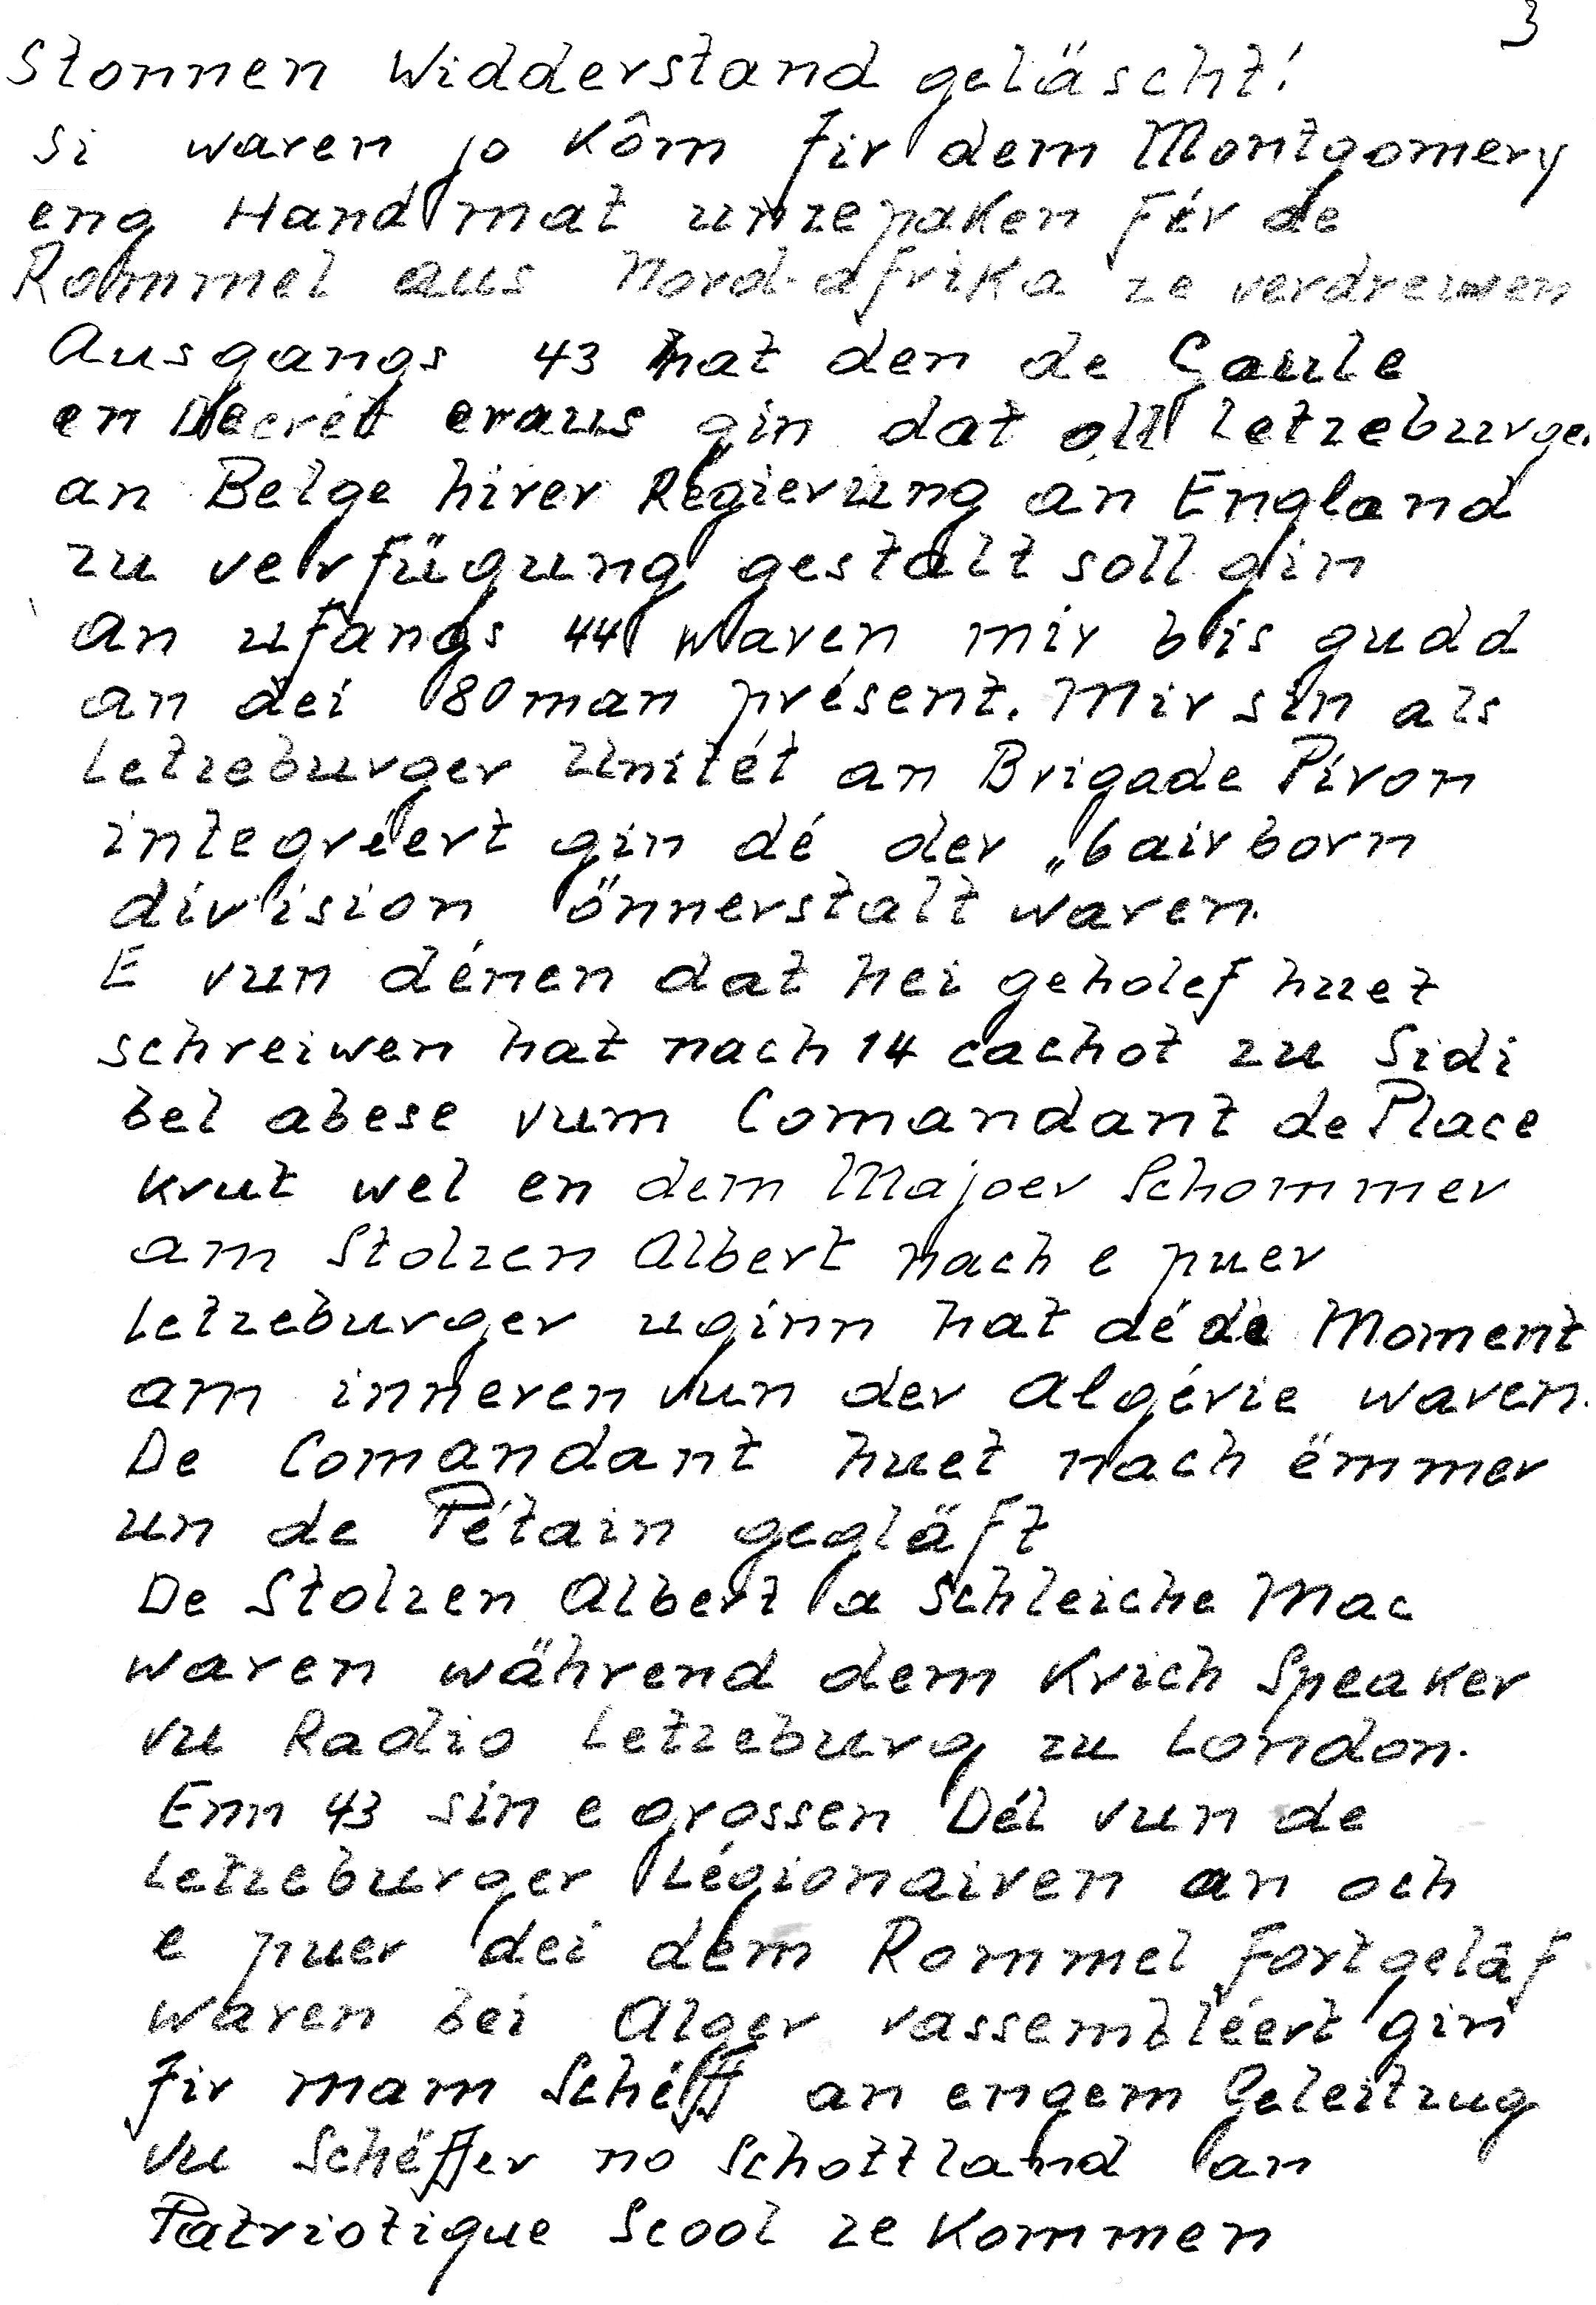 3
Stonnen Widderstand geläscht!
Si waren jo Kôm fir dem Montgomery
eng Hand mat unzepaken fér de
Rommel aus Nord-afrika ze verdreiwen
Ausgangs 43 hat den de Gaule
en Decrét eraus gin dat oll Letzeburger
an Belge hirer Regierung an England
zu verfügung gestallt soll gin
an ufangs 44 waren mir bis gudd
an dei 80 man présent. Mir sin als
Letzeburger Unitét an Brigade Piron
integréert gin dé der „6 airborn
division önnerstallt waren.
E vun dénen dat hei geholef huet
schreiwen hat nach 14 cachot zu Sidi
bel abese vum Comandant de Place
krut wel en dem Majoer Schommer
am Stolzen Albert nach e puer
Letzeburger uginn hat dé de Moment
am inneren vun der Algérie waren.
De Comandant huet nach ëmmer
un de Pétain gegläft
De Stolzen Albert a Schleiche Mac
waren während dem Krich Speaker
vu Radio Letzeburg zu London.
Enn 43 sin e grossen Dél vun de
Letzeburger Légionairen an och
e puer dei dem Rommel fortgelâf
waren bei Alger rassembléert gin
fir mam Schëff an engem Geleitzug
vu Schëffer no Schottland an
Patriotique Scool ze kommen